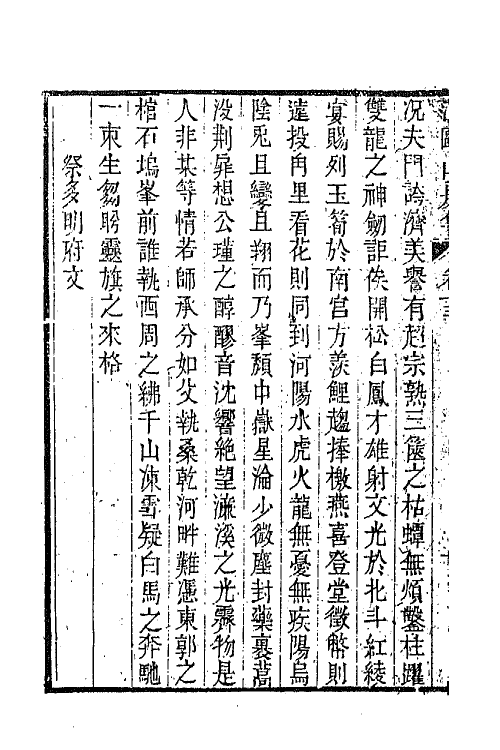 况夫門誇濟美譽有超宗熟三篋之枯蟫無煩鑿柱躍
雙龍之神劒詎俟開松白鳳才雄射文光於北斗紅綾
宴賜列玉筍於南宫方羨鯉趨捧檄燕喜登堂徵幣則
遠投冉里看花則同到河陽水虎火龍無憂無疾陽烏
陰兎且孿且翔而乃峯頽中嶽星淪少微塵封藥裹蒿
没荆扉想公瑾之醇醪音沈響絶望濂溪之光霽物是
人非某等情若師承分如父執桑乾河畔難憑東郭之
棺石塢峯前誰執西周之紼千山凍雪疑白馬之奔馳
一束生芻盻靈旗之來格
祭多明府文